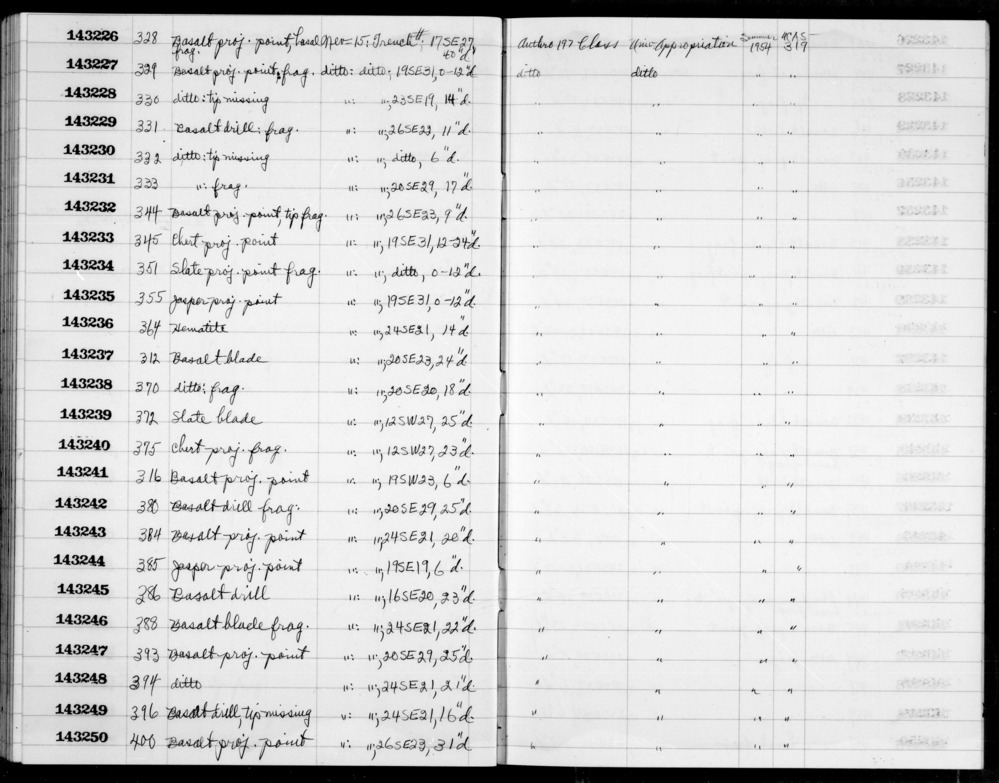 143226 328 Basalt proj. point, basal frag. Nev-15: Trench #: 17SE27, 40"d. Anthro 197 Class Univ. Appropriation Summer 1954 UCAS 319
143227 329 Basalt proj. point, frag. ditto: ditto; 19SE31, 0-12"d ditto ditto " "
143228 330 ditto: tip missing ": ";23SE19, 14"d. " " " "
143229 331 Basalt drill: frag. ": ";26SE22, 11"d. " " " "
143230 332 ditto: tip missing ": "; ditto, 6"d. " " " "
143231 333 ": frag. ": ";20SE29, 17"d. " " " "
143232 344 Basalt proj. point, tip frag. ": ";26SE23, 9"d. " " " "
143233 345 Chert proj. point ": ";19SE31, 12-24"d. " " " "
143234 351 Slate proj. point frag. ": "; ditto, 0-12"d. " " " "
143235 355 Jasper proj. point ": ";19SE31, 0-12"d. " " " "
143236 364 Hematite ": ";24SE21, 14"d. " " " "
143237 312 Basalt blade ": ";20SE23, 24"d. " " " "
143238 370 ditto: frag. ": ";20SE20, 18"d. " " " "
143239 372 Slate blade ": ";12SW27, 25"d. " " " "
143240 375 Chert proj. frag. ": ";12SW27, 23"d. " " " "
143241 316 Basalt proj. point ": "; 19SW23, 6"d. " " " "
143242 380 Basalt drill frag. ": ";20SE29, 25"d. " " " "
143243 384 Basalt proj. point ": ";24SE21, 20"d. " " " "
143244 385 Jasper proj. point ": ";19SE19, 6"d. " " " "
143245 386 Basalt drill ": ";16SE20, 23"d. " " " "
143246 388 Basalt blade frag. ": ";24SE21, 22"d. " " " "
143247 393 Basalt proj. point ": ";20SE29, 25"d. " " " "
143248 394 ditto ": ";24SE21, 21"d. " " " "
143249 396 Basalt drill, tip missing ": ";24SE21, 16"d. " " " "
143250 400 Basalt proj. point ": ";26SE23, 31"d. " " " "